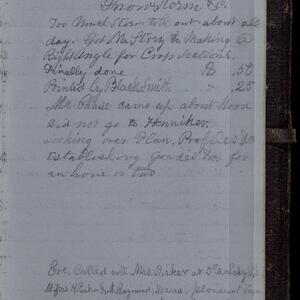 Snow storm &c.
Too Much Storm to be out about all
day. Got Mr Story to Making a
Right Angle for Crop Sections.
Finally done $ .50
Pointed by BlackSmith " .25
Mr. Chase came up about Noon
did not go to Henniker.
looking over Plan, Profiles &c
Establishing Grades &c for
an hour or two
Eve. Called with Mrs. Parker at
Raymond, Dana, pleasant